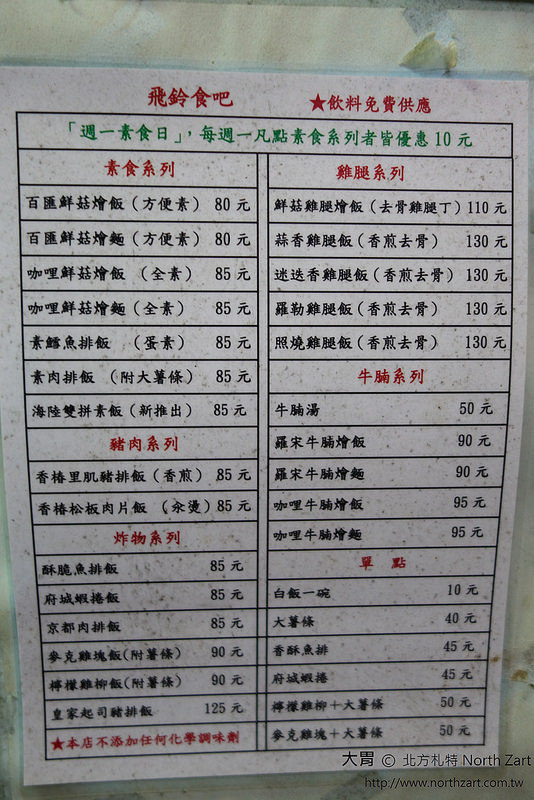 飛鈴食吧 ★飲料免費供應
「週一素食日」，每週一凡點素食系列者皆優惠 10 元
素食系列
百匯鮮菇燴飯（方便素） 80 元
百匯鮮菇燴麵（方便素） 80 元
咖哩鮮菇燴飯 （全素） 85 元
咖哩鮮菇燴麵（全素） 85 元
素鱈魚排飯 （蛋素） 85 元
素肉排飯 （附大薯條） 85 元
海陸雙拼素飯（新推出） 85 元
豬肉系列
香椿里肌豬排飯（香煎） 85 元
香椿松板肉片飯 （汆燙）85 元
炸物系列
酥脆魚排飯 85 元
府城蝦捲飯 85 元
京都肉排飯 85 元
麥克雞塊飯(附薯條) 90 元
檸檬雞柳飯(附薯條) 90 元
皇家起司豬排飯 125 元
★本店不添加任何化學調味劑
雞腿系列
鮮菇雞腿燴飯（去骨雞腿丁）110 元
蒜香雞腿飯（香煎去骨） 130 元
迷迭香雞腿飯（香煎去骨） 130 元
羅勒雞腿飯（香煎去骨） 130 元
照燒雞腿飯（香煎去骨） 130 元
牛腩系列
牛腩湯 50 元
羅宋牛腩燴飯 90 元
羅宋牛腩燴麵 90 元
咖哩牛腩燴飯 95 元
咖哩牛腩燴麵 95 元
單 點
白飯一碗 10 元
大薯條 40 元
香酥魚排 45 元
府城蝦捲 45 元
檸檬雞柳＋大薯條 50 元
麥克雞塊＋大薯條 50 元
大胃 © 北方札特 North Zart
http://www.northzart.com.tw